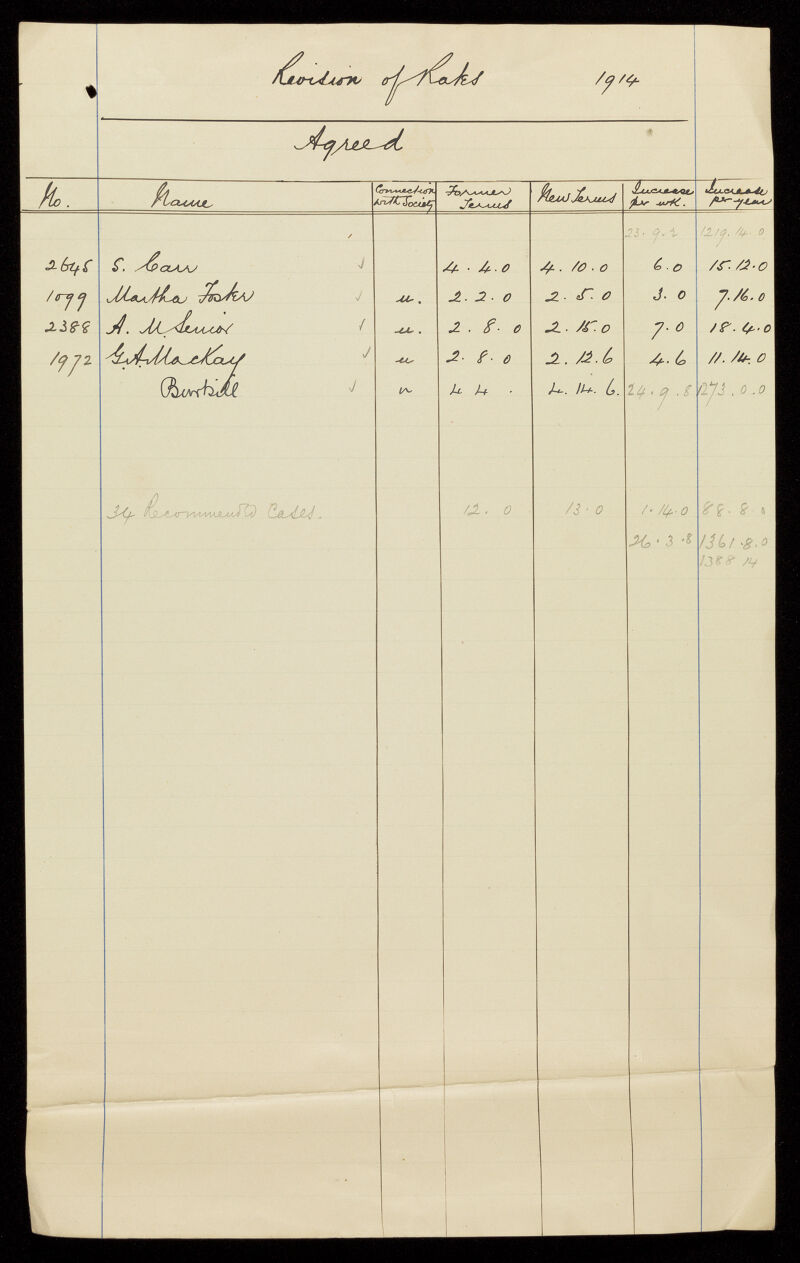 Revision of Rates 1914
Agreed
No. Name Connection with Society Former Terms New Terms Increase per wk. Increase per year
23.9.2 1219.14.0
2645 S. Carr 4.4.0 4.10.0 6.0 15.12.0
1099 Martha Foster u. 2.2.0 2.5.0 3.0 7.16.0
2388 A. M. Senior u. 2.8.0 2.15.0 7.0 18.4.0
1972 G.A. MacKay u 2.8.0 2.12.6 4.6 11.14.0
Burkill u 4 4 . 4.14.6. 24.9.8 1273.0.0
34 Recommended Cases. 12.0 13.0 1.14.0 88.8.0
26.3.8 1361.8.0
1388 14